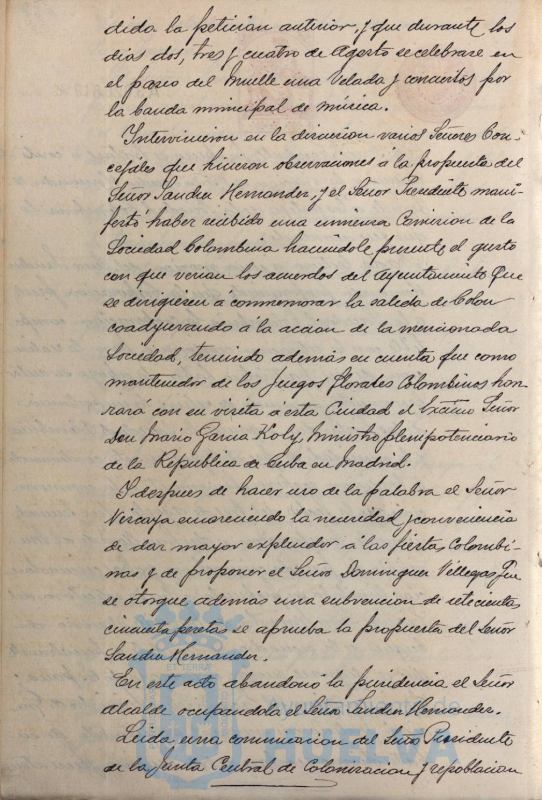 dida la peticion anterior, y que durante los
dias dos, tres y cuatro de Agosto se celebrase en
el paseo del Muelle una Velada y conciertos por
la banda municipal de música.
Intervinieron en la discucion varios Señores Con-
cejales que hicieron observaciones á la propuesta del
Señor Sandra Hernandez, y el Señor Presidente mani-
festó haber recibido una Comision de la
Sociedad Colombina haciendole presente el gusto
con que verian los acuerdos del Ayuntamiento que
se dirigiesen á conmemorar la salida de Colon
coadyuvando á la accion de la mencionada
Sociedad, teniendo además en cuenta que como
mantenedor de los Juegos florales Colombinos hon-
rará con su visita á esta Ciudad el Excmo Señor
Don Mario Garcia Koly, Ministro plenipotenciario
de la Republica de Cuba en Madrid.
Y despues de hacer uso de la palabra el Señor
Vizcaya encareciendo la necesidad y conveniencia
de dar mayor explendor á las fiestas Colombi-
nas y de proponer el Señor Dominguez Villegas que
se otorgue además una subvencion de setecientas
cincuenta pesetas se aprueba la propuesta del Señor
Sandra Hernandez.
En este acto abandonó la presidencia el Señor
alcalde ocupandola el Señor Sandra Hernandez.
Leida una comunicacion del Señor Presidente
de la Junta Central de Colonizacion y repoblacion
HUELVA